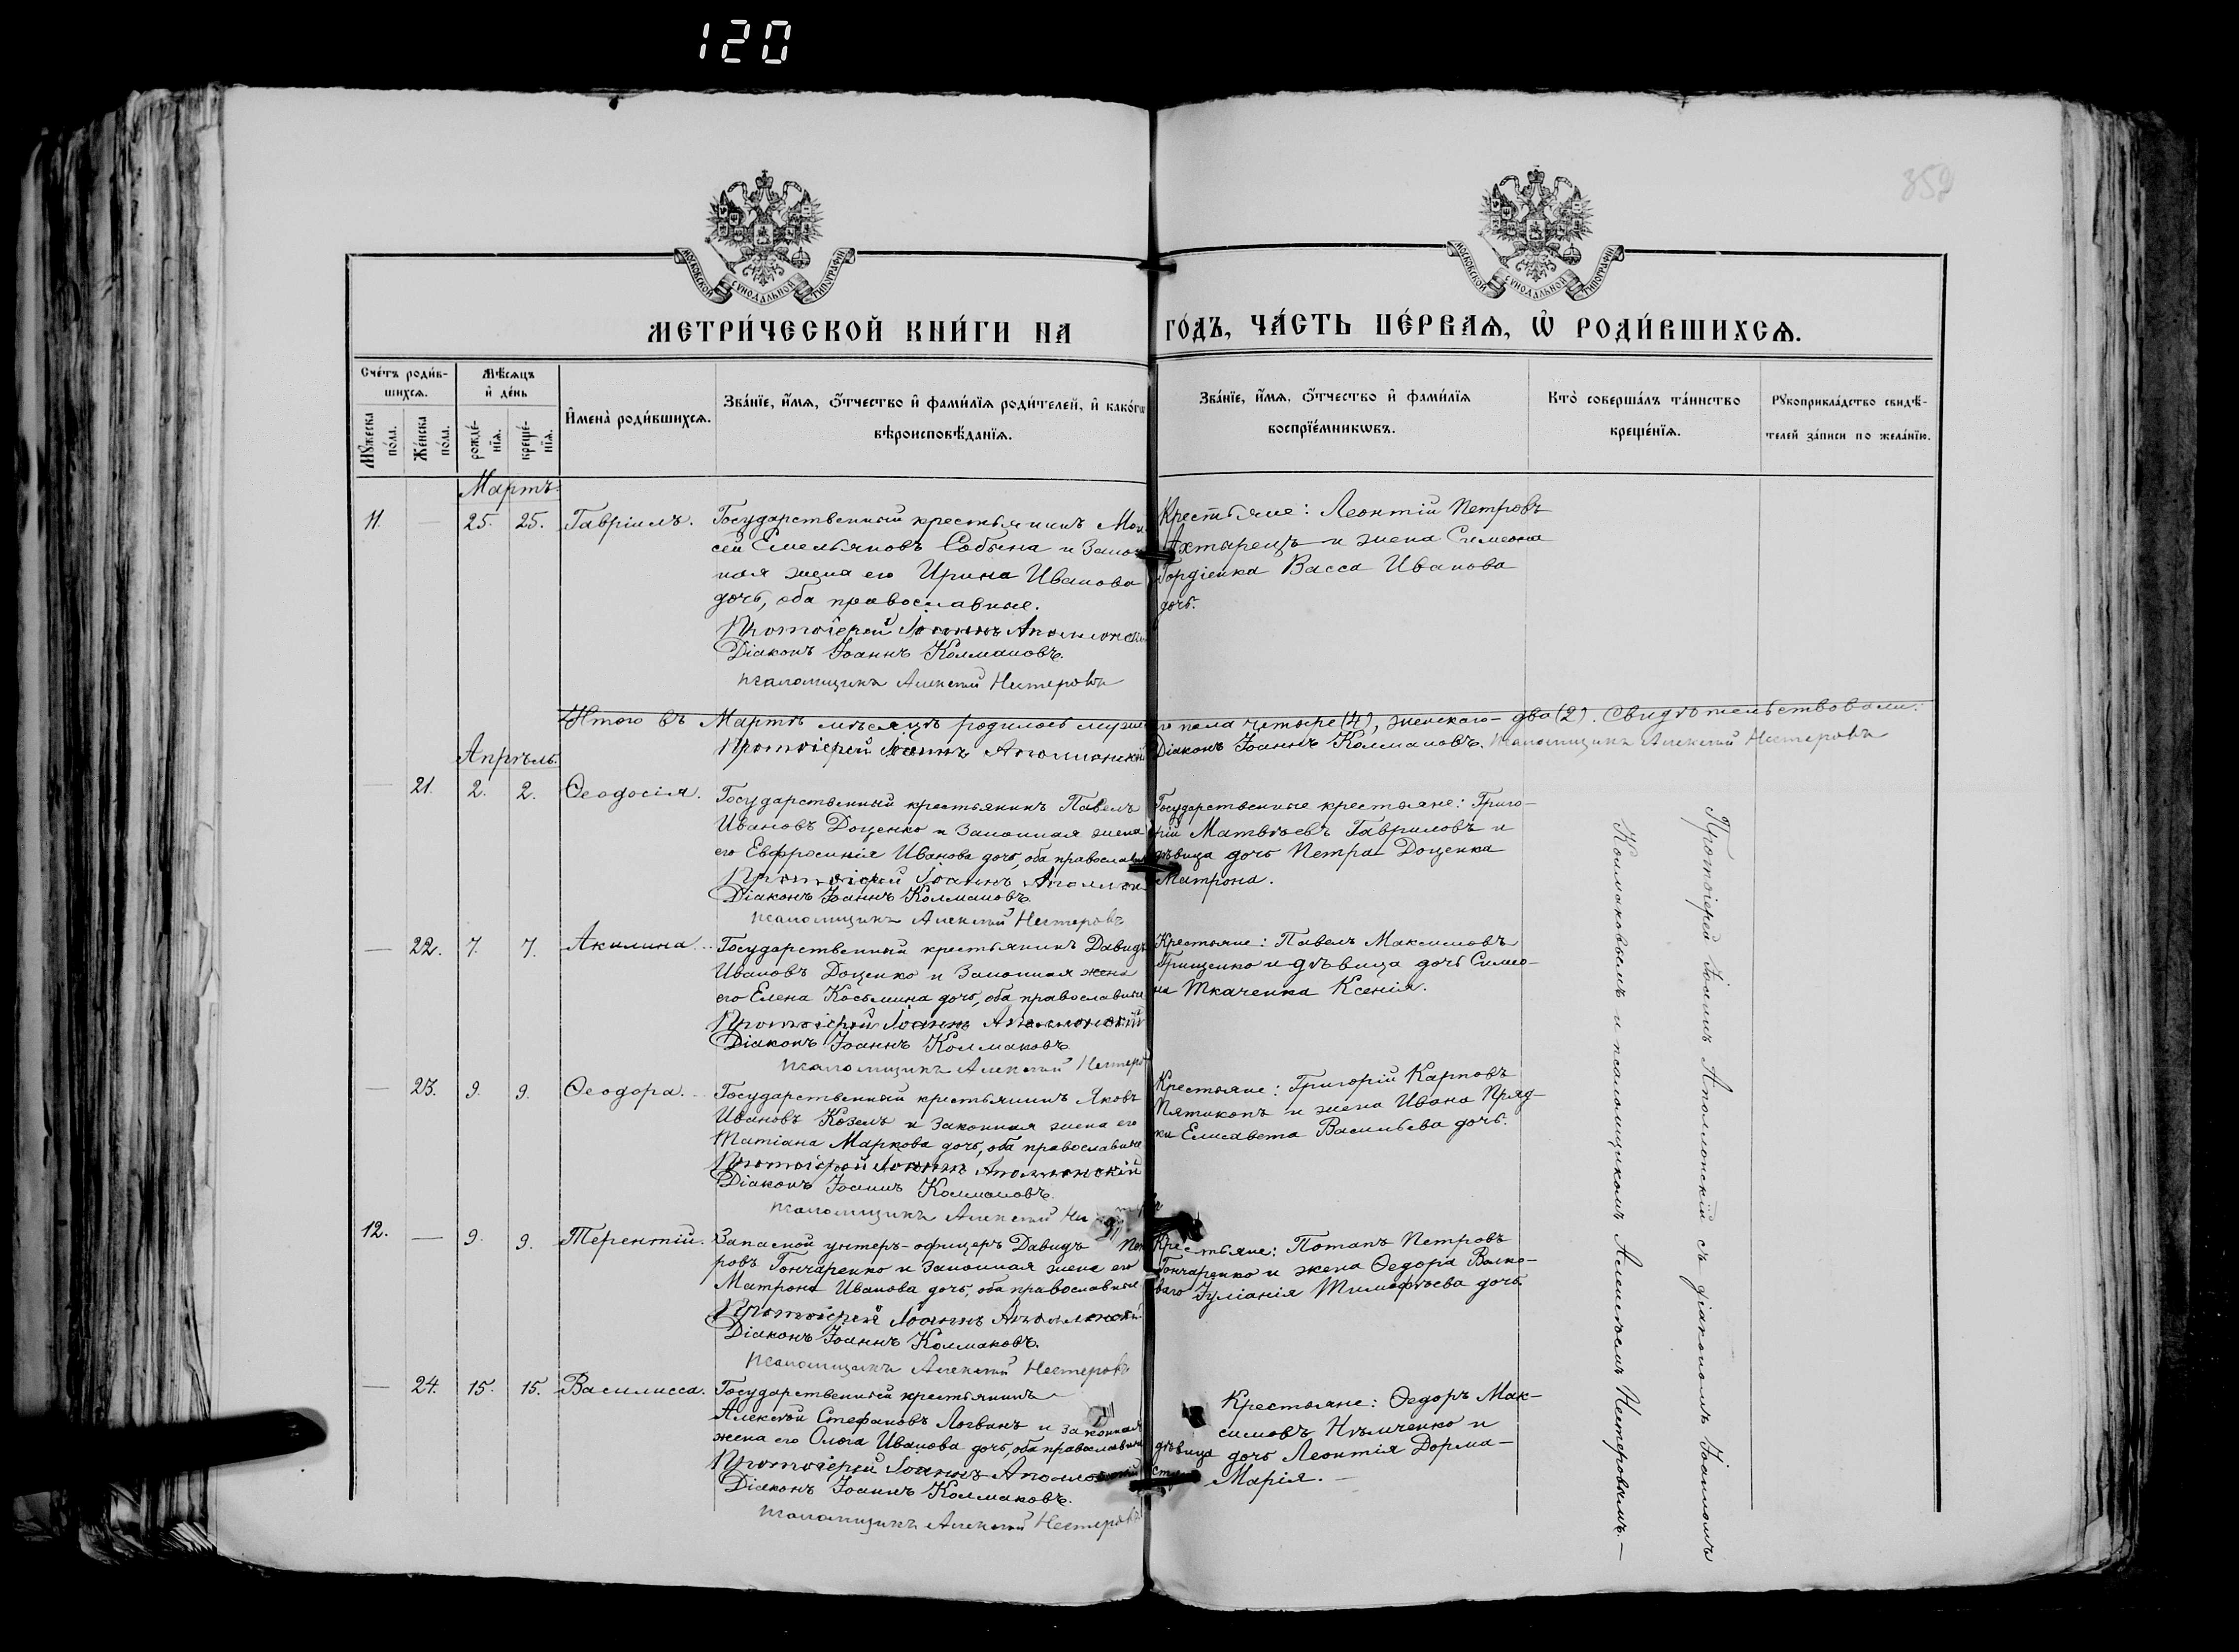 120
352
МОСКОВСКОЙ СѴНОДАЛЬНОЙ ТИПОГРАФІИ
МОСКОВСКОЙ СѴНОДАЛЬНОЙ ТИПОГРАФІИ
МЕТРИ́ЧЕСКОЙ КНИ́ГИ НА ГО́ДЪ, ЧА́СТЬ ПЕ́РВАѦ, Ѡ҆ РОДИ́ВШИХСѦ.
Сче́тъ роди́в-
шихсѧ.
Мꙋ́жеска по́ла.
Же́нска по́ла.
Мѣ́сѧцъ
и҆ де́нь
рожде́-
нїѧ.
креще́-
нїѧ.
И҆мена̀ роди́вшихсѧ.
Зва́нїе, и҆́мѧ, ѻ҆́тчество и҆ фами́лїѧ роди́телей, и҆ како́гѡ
вѣроисповѣ́данїѧ.
Зва́нїе, и҆́мѧ, ѻ҆́тчество и҆ фами́лїѧ
воспрїе́мникѡвъ.
Кто̀ соверша́лъ та́инство
креще́нїѧ.
Рꙋкоприкла́дство свидѣ́-
телей за́писи по жела́нїю.
Мартъ.
11. — 25. 25. Гавріилъ.
Государственный крестьянинъ Мои-
сей Емельяновъ Собына и Закон-
ная жена его Ирина Иванова
дочь, оба православные.
Протоіерей Іоаннъ Аполлонскій
Діаконъ Іоаннъ Колмаковъ.
псаломщикъ Алексѣй Нестеровъ
Крестьяне: Леонтій Петровъ
Ахтырецъ и жена Симеона
Гордіенка Васса Иванова
дочь.
Итого въ Мартѣ мѣсяцѣ родилось мужескаго пола четыре (4), женскаго – два (2). Свидѣтельствовали:
Протоіерей Іоаннъ Аполлонскій Діаконъ Іоаннъ Колмаковъ. псаломщикъ Алексѣй Нестеровъ
Апрѣль.
— 21. 2. 2. Ѳеодосія.
Государственный крестьянинъ Павелъ
Ивановъ Доценко и Законная жена
его Евфросинія Иванова дочь, оба православные
Протоіерей Іоаннъ Аполлон
Діаконъ Іоаннъ Колмаковъ.
псаломщикъ Алексѣй Нестеровъ
Государственные крестьяне: Григо-
рій Матвѣевъ Гавриловъ и
дѣвица дочь Петра Доценка
Матрона.
— 22. 7. 7. Акилина.
Государственный крестьянинъ Давидъ
Ивановъ Доценко и Законная жена
его Елена Косьмина дочь, оба православные
Протоіерей Іоаннъ Аполлонскій
Діаконъ Іоаннъ Колмаковъ.
псаломщикъ Алексѣй Нестеро
Крестьяне: Павелъ Максимовъ
Грищенко и дѣвица дочь Симео-
на Ткаченка Ксенія.
— 23. 9. 9. Ѳеодора.
Государственный крестьянинъ Яковъ
Ивановъ Козелъ и Законная жена его
Татіана Маркова дочь, оба православные
Протоіерей Іоаннъ Аполлонскій
Діаконъ Іоаннъ Колмаковъ.
псаломщикъ Алексѣй
Крестьяне: Григорій Карповъ
Пятикопъ и жена Ивана Пряд-
ки Елисавета Васильева дочь.
12. — 9. 9. Терентій.
Запасной унтеръ-офицеръ Давидъ Пет-
ровъ Гончаренко и Законная жена его
Матрона Иванова дочь, оба православные
Протоіерей Іоаннъ Аполлонскій
Діаконъ Іоаннъ Колмаковъ.
псаломщикъ Алексѣй Нестеровъ
Крестьяне: Потапъ Петровъ
Гончаренко и жена Ѳедора Волко-
ваго Іуліанія Тимофѣева дочь.
— 24. 15. 15. Василисса.
Государственный крестьянинъ
Алексѣй Стефановъ Логвинъ и законная
жена его Ольга Иванова дочь, оба православные
Протоіерей Іоаннъ Аполлонскій
Діаконъ Іоаннъ Колмаковъ.
псаломщикъ Алексѣй Нестеровъ
Крестьяне: Ѳедоръ Мак-
симовъ Нѣмченко и
дѣвица дочь Леонтія Дорма-
Марія. —
Протоіерей Іоаннъ Аполлонскій съ діакономъ Іоанномъ
Колмаковымъ и псаломщикомъ Алексѣемъ Нестеровымъ. —